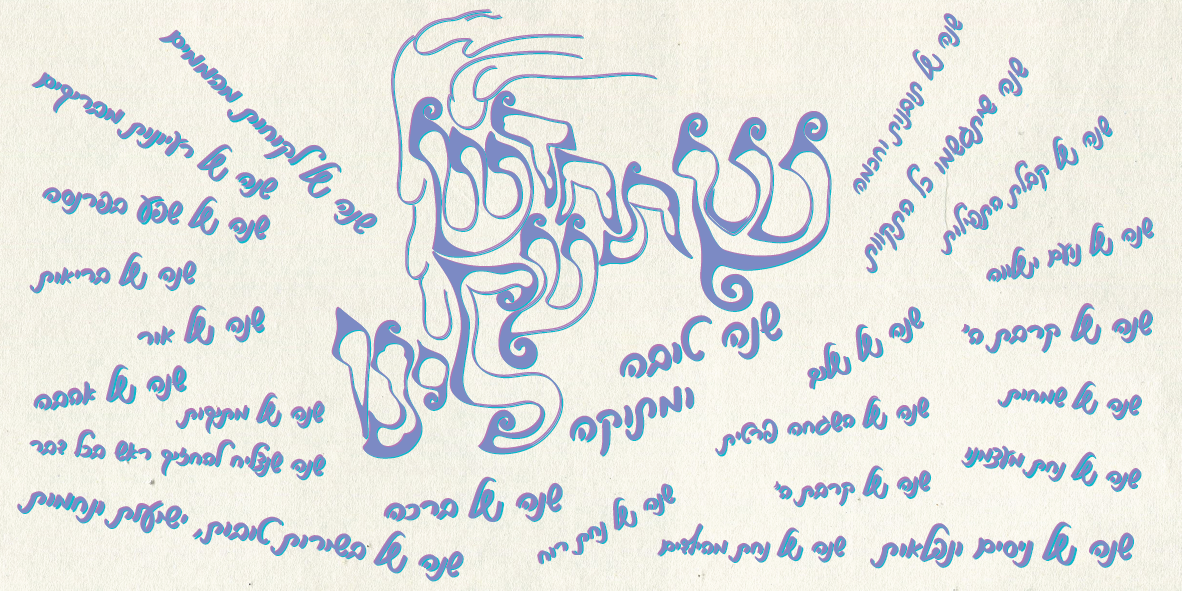 שנה של תבונות וחכמה
שנה שיתגשמו כל התקוות
שנה של קבלת התפילות
שנה של נועם ושלווה
שנה של קרבת ה'
שנה של
שנה של שמחות
שנה של השגחה פרטית
שנה של נחת מעצמנו
שנה של קרבת ה'
שנה של ניסים ונפלאות
שנה של נחת מהילדים
שנה של נחת רוח
שנה טובה
ומתוקה
שנה של ברכה
שנה של לקוחות מהממים
שנה של רעיונות מבריקים
שנה של שפע בפרנסה
שנה של בריאות
שנה של אור
שנה של אהבה
שנה של מתיקות
שנה שנצליח להחזיק ראש בכל דבר
שנה של בשורות טובות, ישועות ונחמות